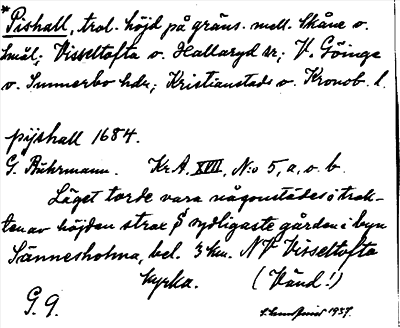 * Pishall, trol. höjd på gräns. mell. Skåne o.
Smål; Visseltofta o. Hallaryd sr; V. Göinge
o. Sunnerbo hdr; Kristianstads o. Kronob. l.
pijshall 1684.
G. Buhrmann. Kr.A. XVII, N:o 5, a, o. b.
Läget torde vara någonstädes i trak-
ten av höjden strax S sydligaste gården i byn
Sännesholma, bel. 3 km. NV Visseltofta
kyrka. (Vänd!)
G. 9. 1937.